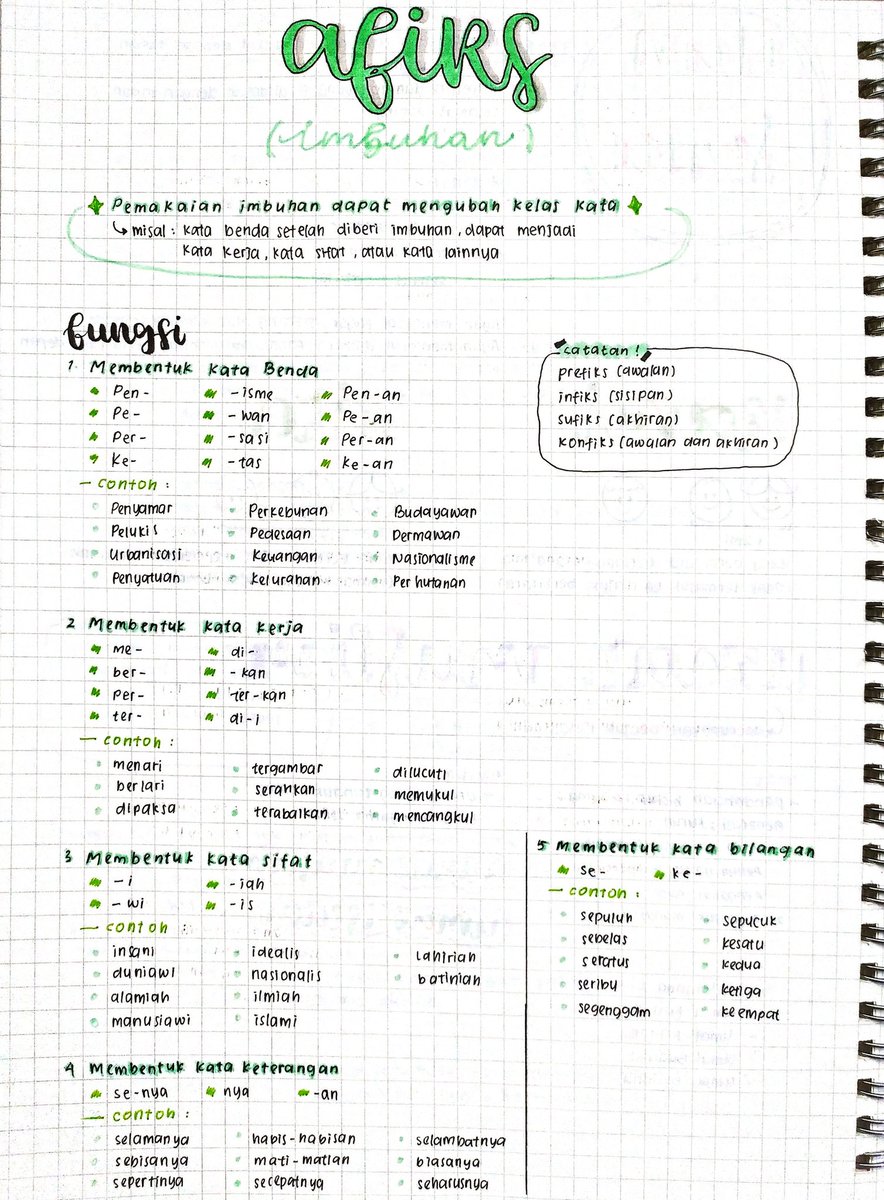 afiks
(imbuhan)
Pemakaian imbuhan dapat mengubah kelas kata
↳ misal : kata benda setelah diberi imbuhan, dapat menjadi
kata kerja, kata sifat, atau kata lainnya
fungsi
Catatan !
prefiks (awalan)
infiks (sisipan)
sufiks (akhiran)
konfiks (awalan dan akhiran)
1. Membentuk kata Benda
Pen- -isme Pen-an
Pe- -wan Pe-an
Per- -sasi Per-an
Ke- -tas ke-an
– contoh :
Penyamar Perkebunan Budayawan
Pelukis Pedesaan Dermawan
Urbanisasi Keuangan Nasionalisme
Penyatuan Kelurahan Perhutanan
2 Membentuk kata kerja
me- di-
ber- -kan
per- ter-kan
ter- di-i
– contoh :
menari tergambar dilucuti
berlari serahkan memukul
dipaksa terabaikan mencangkul
3 Membentuk kata sifat
-i -iah
-wi -is
– contoh :
insani idealis lahiriah
duniawi nasionalis batiniah
alamiah ilmiah
manusiawi islami
4 Membentuk kata keterangan
se-nya nya -an
– contoh :
selamanya habis-habisan selambatnya
sebisanya mati-matian biasanya
sepertinya secepatnya seharusnya
5 Membentuk kata bilangan
se- ke-
– contoh :
sepuluh sepucuk
sebelas kesatu
seratus kedua
seribu ketiga
segenggam keempat